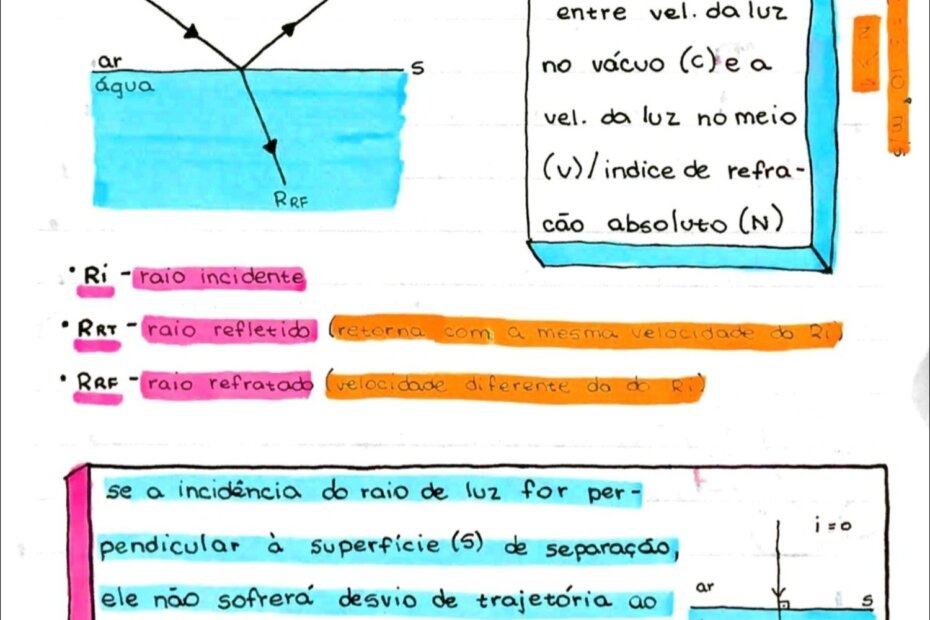 ar
S
água
RRF
entre vel. da luz
no vácuo (c) e a
vel. da luz no meio
(v)/indice de refra-
cão absoluto (N)
• Ri - raio incidente
• RRT - raio refletido (retorna com a mesma velocidade do Ri)
• RRF - raio refratado (velocidade diferente da do Ri)
se a incidência do raio de luz for per-
pendicular à superfície (S) de separação,
ele não sofrerá desvio de trajetória ao
i = 0
ar
S